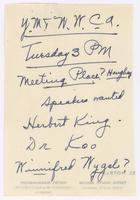 Y.M & W.W. C.a.
Tuesday 3 PM
Meeting Place?
Speakers wanted
Herbert King.
Dr Koo
Winnifred Wygal?